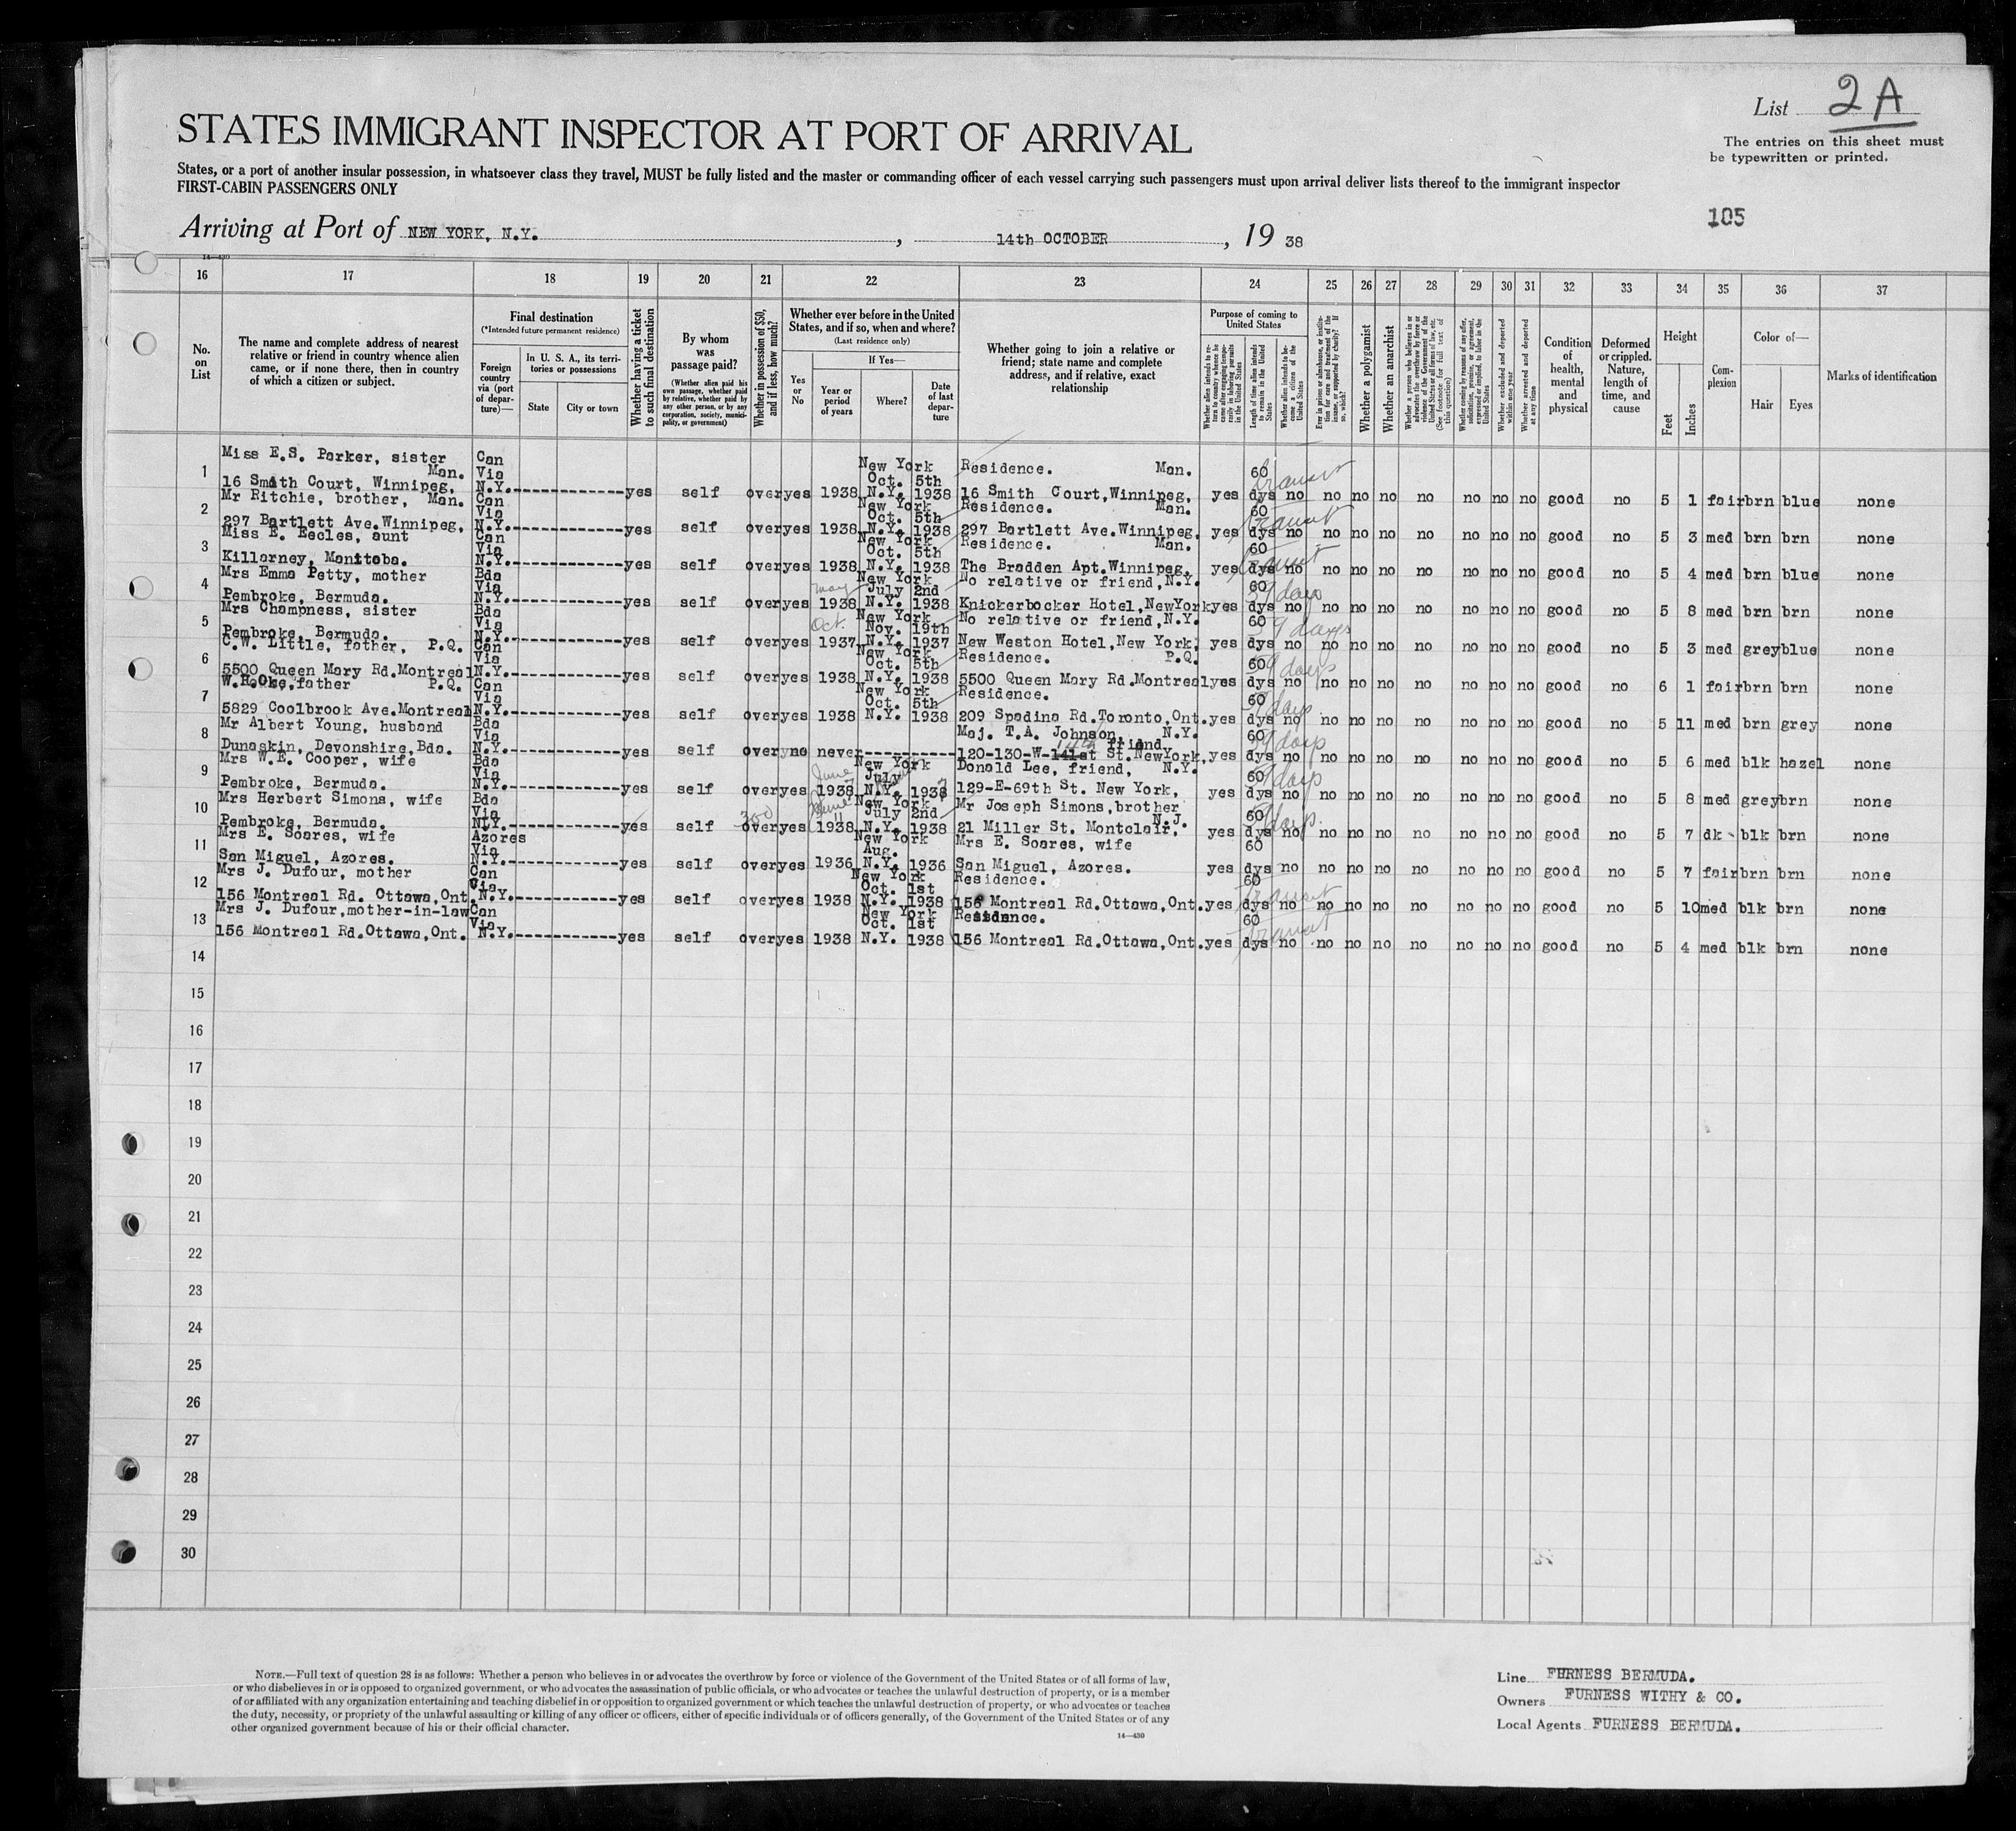 List 2 A
The entries on this sheet must
be typewritten or printed.
STATES IMMIGRANT INSPECTOR AT PORT OF ARRIVAL
States, or a port of another insular possession, in whatsoever class they travel, MUST be fully listed and the master or commanding officer of each vessel carrying such passengers must upon arrival deliver lists thereof to the immigrant inspector
FIRST-CABIN PASSENGERS ONLY
105
Arriving at Port of NEW YORK, N.Y. , 14th OCTOBER , 19 38
14—430
16 17 18 19 20 21 22 23 24 25 26 27 28 29 30 31 32 33 34 35 36 37
No. on List
The name and complete address of nearest relative or friend in country whence alien came, or if none there, then in country of which a citizen or subject.
Final destination
(*Intended future permanent residence)
Foreign country via (port of departure)—
In U. S. A., its territories or possessions
State City or town
Whether having a ticket to such final destination
By whom was passage paid?
(Whether alien paid his own passage, whether paid by relative, whether paid by any other person, or by any corporation, society, municipality, or government)
Whether in possession of $50, and if less, how much?
Whether ever before in the United States, and if so, when and where?
(Last residence only)
Yes or No
If Yes—
Year or period of years Where? Date of last departure
Whether going to join a relative or friend; state name and complete address, and if relative, exact relationship
Purpose of coming to United States
Whether alien intends to return to country whence he came after engaging temporarily in laboring pursuits in the United States
Length of time alien intends to remain in the United States
Whether alien intends to become a citizen of the United States
Ever in prison or almshouse, or institution for care and treatment of the insane, or supported by charity? If so, which?
Whether a polygamist
Whether an anarchist
Whether a person who believes in or advocates the overthrow by force or violence of the Government of the United States or all forms of law, etc. (See footnote for full text of this question)
Whether coming by reasons of any offer, solicitation, promise, or agreement, expressed or implied, to labor in the United States
Whether excluded and deported within one year
Whether arrested and deported at any time
Condition of health, mental and physical
Deformed or crippled. Nature, length of time, and cause
Height
Feet Inches
Complexion
Color of—
Hair Eyes
Marks of identification
1 Miss E.S. Parker, sister Man. 16 Smith Court, Winnipeg, Can Via N.Y. yes self over yes 1938 New York N.Y. Oct. 5th 1938 Residence. Man. 16 Smith Court,Winnipeg, yes 60 dys transit no no no no no no no no good no 5 1 fair brn blue none
2 Mr Ritchie, brother, Man. 297 Bartlett Ave.Winnipeg, Can Via N.Y. yes self over yes 1938 New York N.Y. Oct. 5th 1938 Residence. Man. 297 Bartlett Ave.Winnipeg. yes 60 dys transit no no no no no no no no good no 5 3 med brn brn none
3 Miss E. Eccles, aunt Killarney, Manitoba. Can Via N.Y. yes self over yes 1938 New York N.Y. Oct. 5th 1938 Residence. Man. The Bradden Apt.Winnipeg, yes 60 dys transit no no no no no no no no good no 5 4 med brn blue none
4 Mrs Emma Petty, mother Pembroke, Bermuda. Bda Via N.Y. yes self over yes may 1938 New York N.Y. July 2nd 1938 No relative or friend,N.Y. Knickerbocker Hotel,NewYork yes 60 dys 59 days no no no no no no no no good no 5 8 med brn brn none
5 Mrs Champness, sister Pembroke, Bermuda. Bda Via N.Y. yes self over yes Oct. 1937 New York N.Y. Nov. 19th 1937 No relative or friend,N.Y. New Weston Hotel,New York, yes 60 dys 59 days no no no no no no no no good no 5 3 med grey blue none
6 C.W. Little, father, P.Q. 5500 Queen Mary Rd.Montreal Can Via N.Y. yes self over yes 1938 New York N.Y. Oct. 5th 1938 Residence. P.Q. 5500 Queen Mary Rd.Montreal yes 60 dys 59 days no no no no no no no no good no 6 1 fair brn brn none
7 W.H.Oke,father P.Q. 5829 Coolbrook Ave.Montreal Can Via N.Y. yes self over yes 1938 New York N.Y. Oct. 5th 1938 Residence. 209 Spadina Rd.Toronto,Ont. yes 60 dys 59 days no no no no no no no no good no 5 11 med brn grey none
8 Mr Albert Young, husband Dunaskin, Devonshire,Bda. Bda Via N.Y. yes self over no never Maj. T.A. Johnson, N.Y. friend 120-130-W-141st St.NewYork, yes 60 dys 59 days no no no no no no no no good no 5 6 med blk hazel none
9 Mrs W.E. Cooper, wife Pembroke, Bermuda. Bda Via N.Y. yes self over yes June 1938 New York N.Y. July 1938 Donald Lee, friend, N.Y. 129-E-69th St. New York, yes 60 dys 59 days no no no no no no no no good no 5 8 med grey brn none
10 Mrs Herbert Simons, wife Pembroke, Bermuda. Bda Via N.Y. yes self 300 over yes June 11 1938 New York N.Y. July 2nd 1938 Mr Joseph Simons,brother N.J. 21 Miller St. Montclair, yes 60 dys 59 days no no no no no no no no good no 5 7 dk blk brn none
11 Mrs E. Soares, wife San Miguel, Azores. Azores Via N.Y. yes self over yes 1936 New York N.Y. Aug. 1936 Mrs E. Soares, wife San Miguel, Azores. yes 60 dys no no no no no no no no good no 5 7 fair brn brn none
12 Mrs J. Dufour, mother 156 Montreal Rd. Ottawa,Ont. Can Via N.Y. yes self over yes 1938 New York N.Y. Oct. 1st 1938 Residence. 156 Montreal Rd.Ottawa,Ont. yes 60 dys transit no no no no no no no no good no 5 10 med blk brn none
13 Mrs J. Dufour,mother-in-law 156 Montreal Rd.Ottawa,Ont. Can Via N.Y. yes self over yes 1938 New York N.Y. Oct. 1st 1938 Residence. 156 Montreal Rd.Ottawa,Ont. yes 60 dys transit no no no no no no no no good no 5 4 med blk brn none
14
15
16
17
18
19
20
21
22
23
24
25
26
27
28
29
30
NOTE.—Full text of question 28 is as follows: Whether a person who believes in or advocates the overthrow by force or violence of the Government of the United States or of all forms of law,
or who disbelieves in or is opposed to organized government, or who advocates the assassination of public officials, or who advocates or teaches the unlawful destruction of property, or is a member
of or affiliated with any organization entertaining and teaching disbelief in or opposition to organized government or which teaches the unlawful destruction of property, or who advocates or teaches
the duty, necessity, or propriety of the unlawful assaulting or killing of any officer or officers, either of specific individuals or of officers generally, of the Government of the United States or of any
other organized government because of his or their official character.
14—430
Line FURNESS BERMUDA.
Owners FURNESS WITHY & CO.
Local Agents FURNESS BERMUDA.